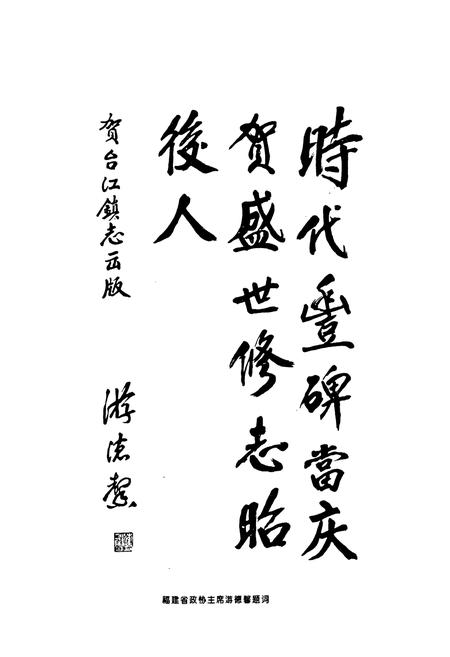 時代豐碑當庆
贺盛世修志贻
後人
贺台江鎮志出版
游德馨
福建省政协主席游德馨题词